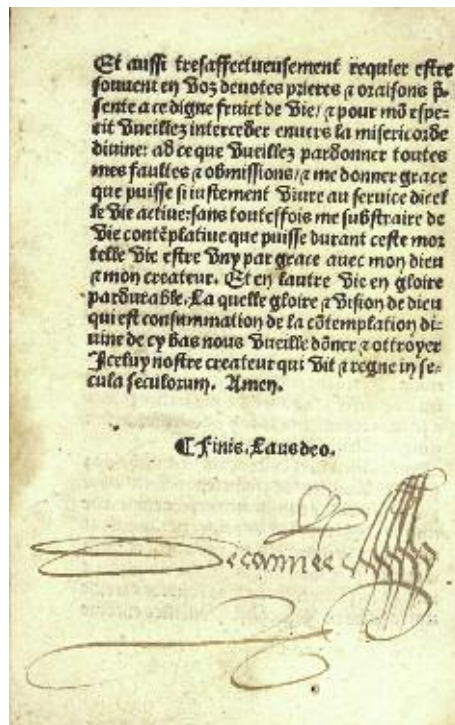 Et aussi tresaffectueusement requier estre
souuent en voz deuotes prieres ⁊ oraisons p̃-
sente a ce digne fruict de vie/ ⁊ pour mõ espe-
rit vueillez interceder enuers la misericorde
diuine: ad ce que vueillez pardonner toutes
mes faultes ⁊ obmissions/ ⁊ me donner grace
que puisse si iustement viure au seruice dicel
le vie actiue: sans touteffois me substraire de
vie contẽplatiue que puisse durant ceste mor
telle vie estre vny par grace auec mon dieu
⁊ mon createur. Et en lautre vie en gloire
pardurable. La quelle gloire ⁊ vision de dieu
qui est consummation de la cõtemplation di-
uine de cy bas nous vueille dõner ⁊ ottroyer
Iceluy nostre createur qui vit ⁊ regne in se-
cula seculorum. Amen.
¶ Finis. Laus deo.